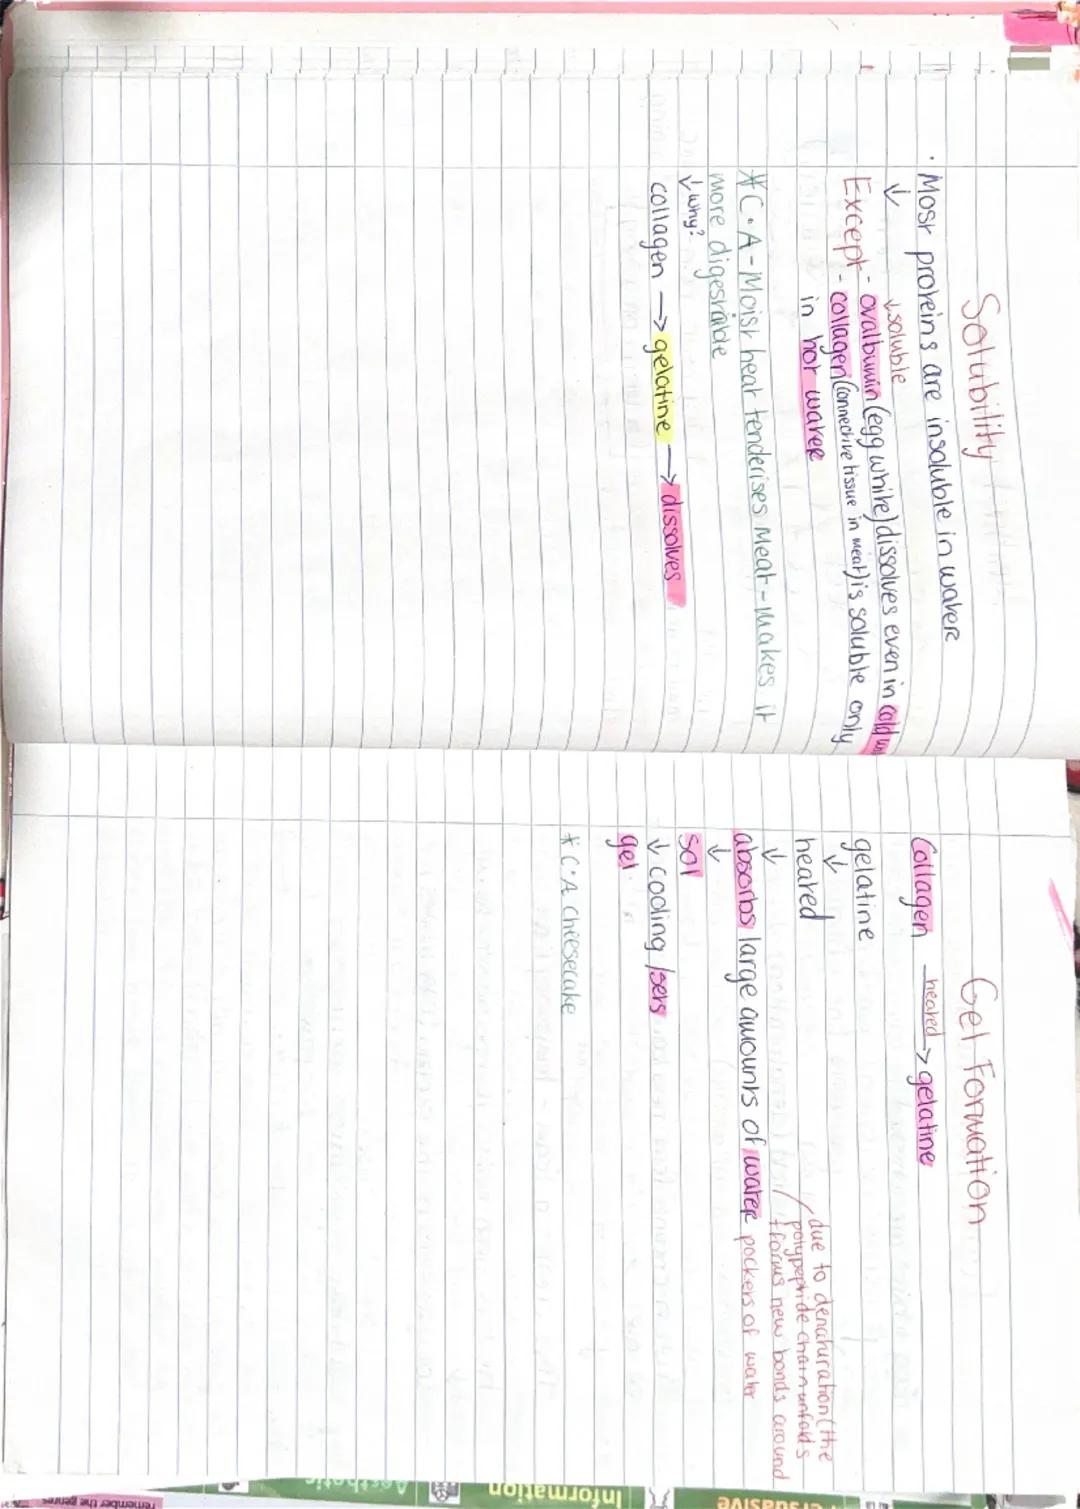 Solubility
· Most proteins are insoluble in water
↓ ↓soluble
Except - ovalbumin (egg white) dissolves even in cold
- collagen (connective tissue in meat) is soluble only
in hot water
*C·A - Moist heat tenderises meat - makes it
more digestable
↓ why?
collagen → gelatine → dissolves
Gel Formation
Collagen heated → gelatine
gelatine
↓
heated
↓
absorbs large amounts of water pockets of water
due to denaturation (the
polypeptide chain unfolds
+ forms new bonds around
↓
sol
↓ cooling / sets
gel
* C·A Cheesecake
Persuasive
Information
Aesthetic
remember the genres